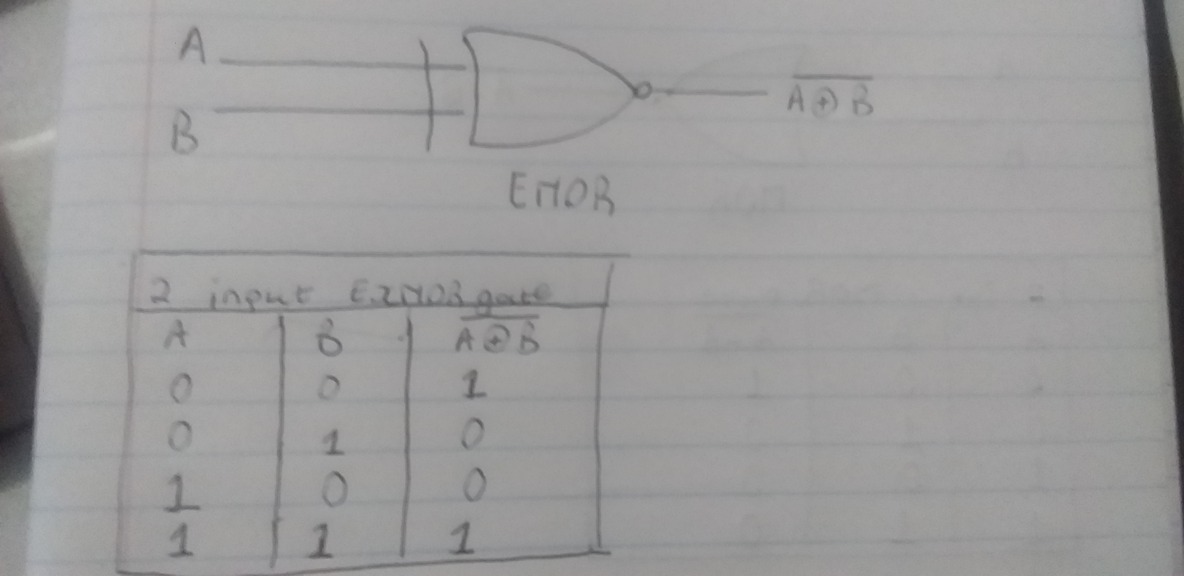 A
A̅ ̅⊕̅ ̅B̅
B
ENOR
2 input EXNOR gate
A B A̅ ̅⊕̅ ̅B̅
0 0 1
0 1 0
1 0 0
1 1 1